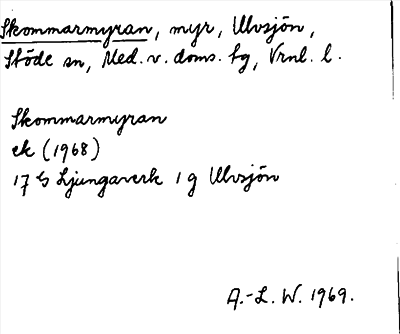 Skommarmyran, myr, Ulvsjön,
Stöde sn, Med. v. doms. tg, Vrnl. l.
Skommarmyran
ek (1968)
17 G Ljungaverk 1 g Ulvsjön
A.-L. W. 1969.